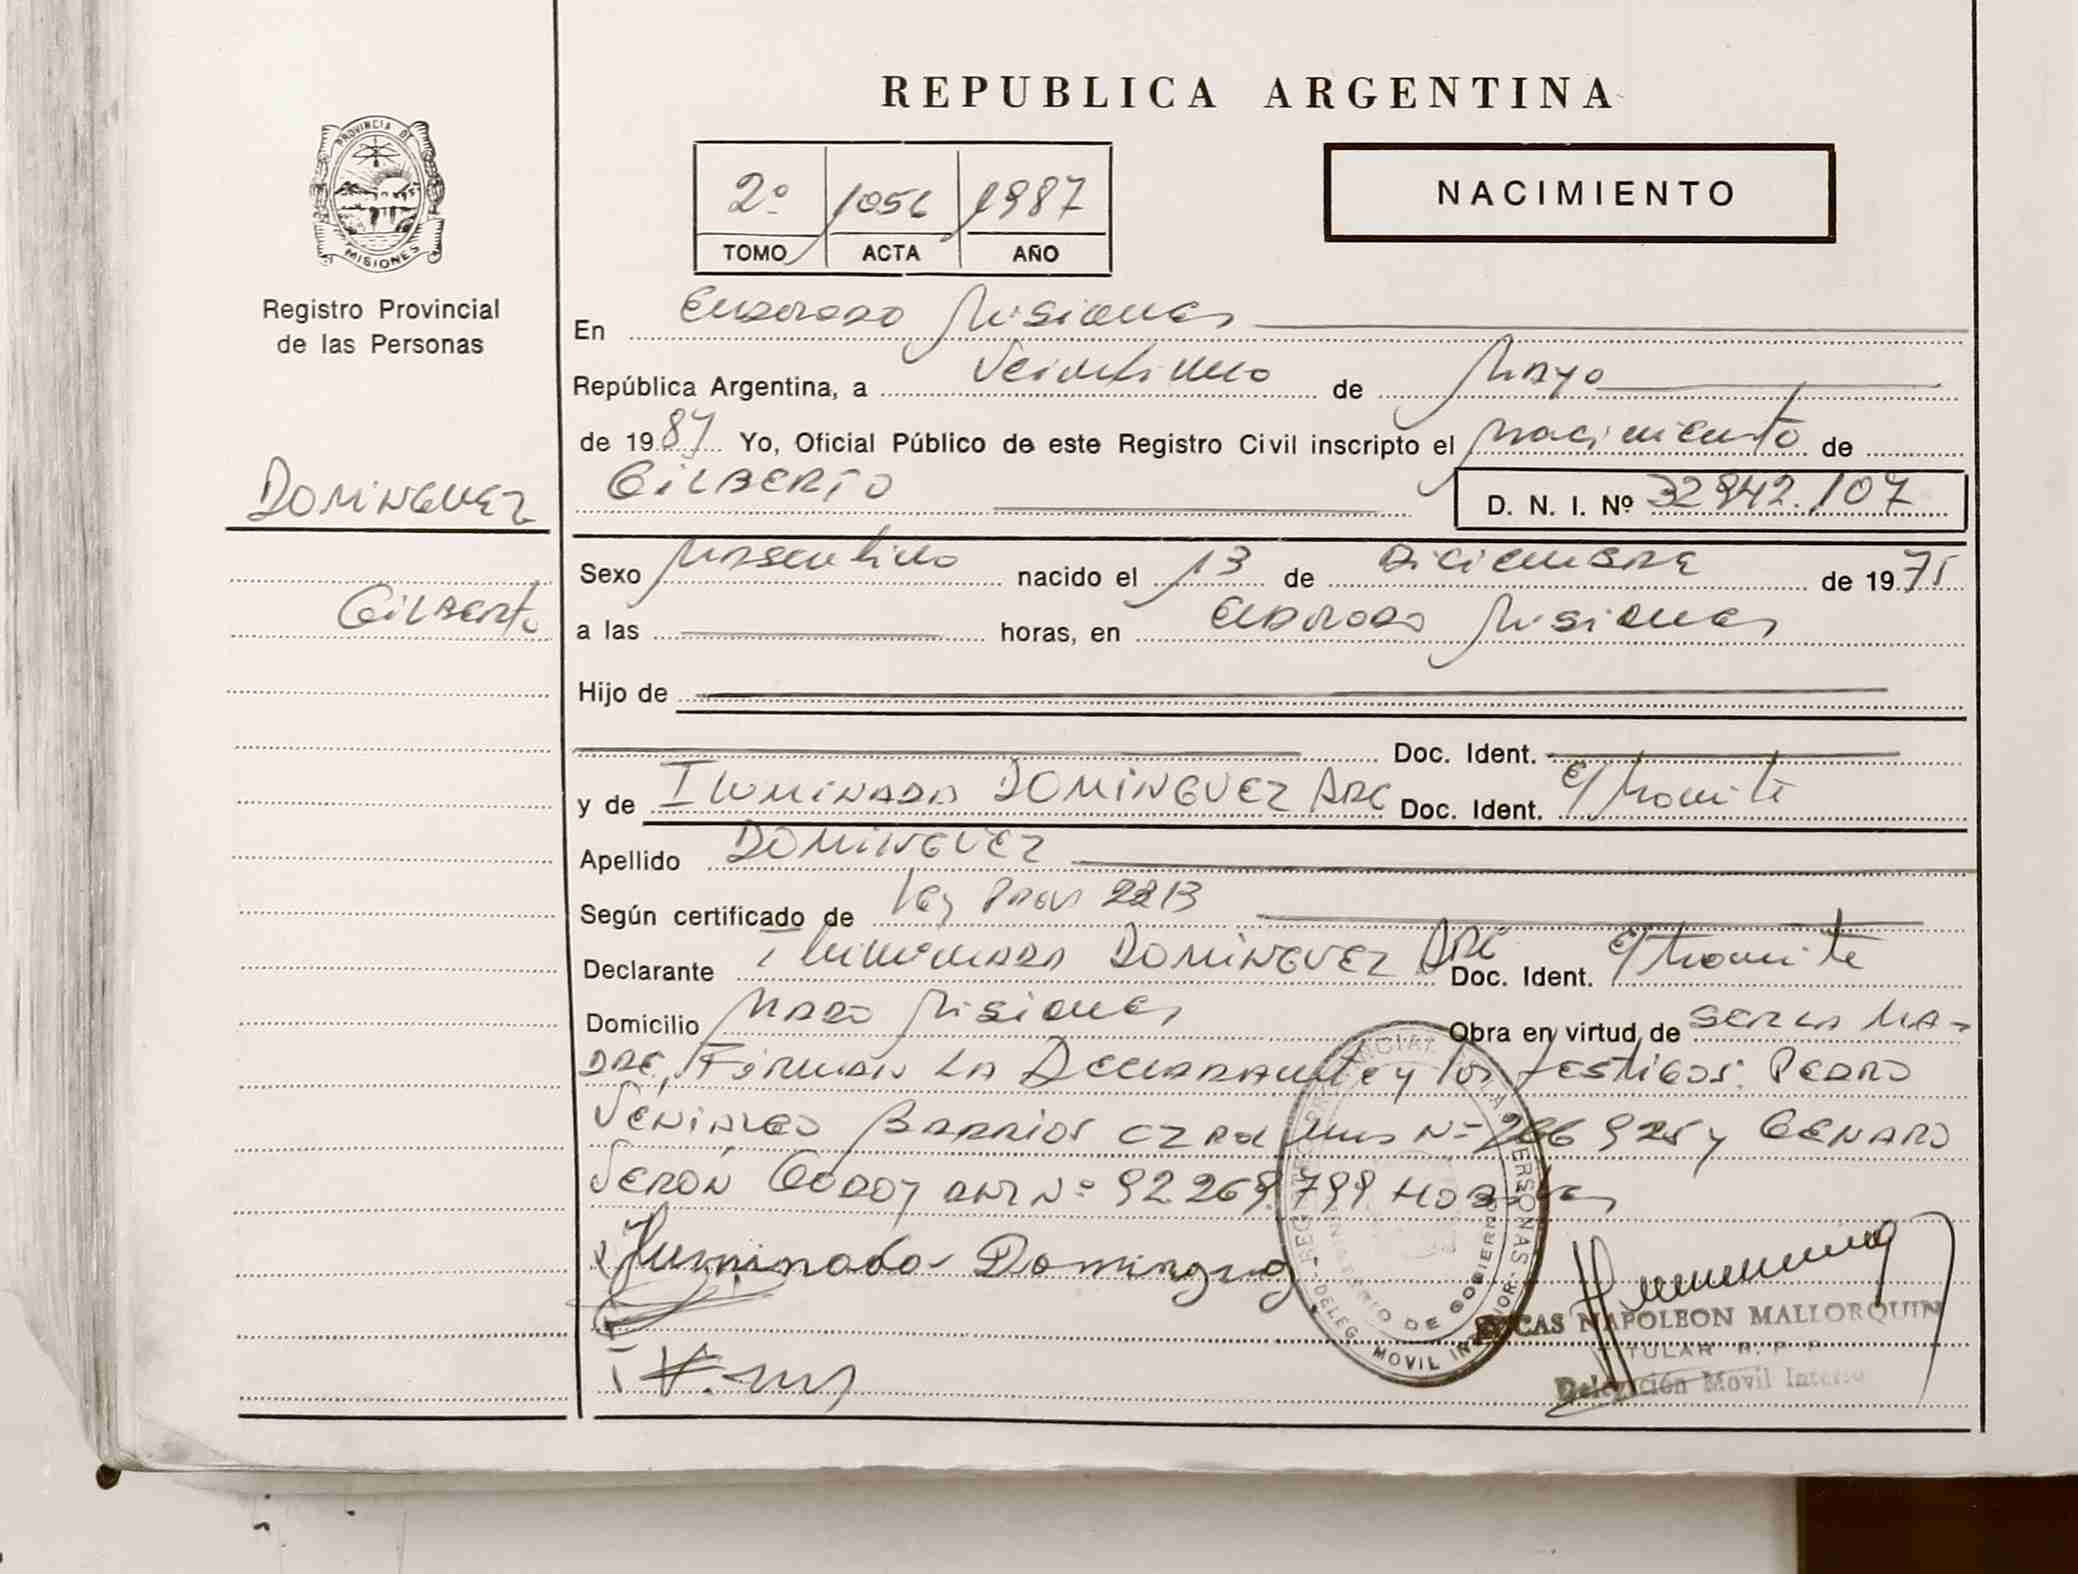 REPUBLICA ARGENTINA
PROVINCIA DE MISIONES
Registro Provincial
de las Personas
2º 1056 1987
TOMO ACTA AÑO
NACIMIENTO
En Eldorado Misiones
República Argentina, a Veintiuno de Mayo
de 1987 Yo, Oficial Público de este Registro Civil inscripto el nacimiento de
DOMINGUEZ
Gilberto
GILBERTO D. N. I. Nº 32942.107
Sexo Masculino nacido el 13 de Diciembre de 1975
a las horas, en Eldorado Misiones
Hijo de
Doc. Ident.
y de ILUMINADA DOMINGUEZ ARG Doc. Ident. E/tramite
Apellido DOMINGUEZ
Según certificado de Ley Prov 2213
Declarante Iluminada DOMINGUEZ ARG Doc. Ident. E/tramite
Domicilio Mado Misiones Obra en virtud de SER LA MA-
DRE, Firman LA Declarante y los testigos: Pedro
BARRIOS Nº y GENARO
VERON GODOY DNI Nº 92269.799
Iluminada Domingez
REGISTRO PROVINCIAL DE LAS PERSONAS
MINISTERIO DE GOBIERNO
DELEG. MOVIL INTERIOR
NAPOLEON MALLORQUIN
TITULAR R. P. P.
Delegación Móvil Interior